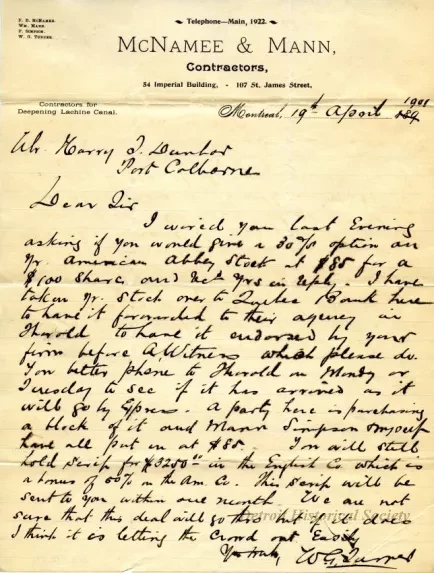 F. B. McNamee.
Wm. Mann.
F. Simpson.
W. G. Turner.
Telephone—Main, 1922.
McNamee & Mann,
Contractors,
54 Imperial Building, - 107 St. James Street,
Contractors for
Deepening Lachine Canal.
Montreal, 19th April 1901 189
Mr. Harry J. Dunbar
Port Colborne
Dear Sir
I wired you last Evening
asking if you would give a 30 option on
Yr. American Abbey Stock at $85 for a
$100 Share, and Yrs in reply, I have
taken yr. Stock over to Quebec Bank here
to have it forwarded to their agency in
Thorold to have it endorsed by your
firm before A Witness which please do.
You better phone to Thorold on Monday or
Tuesday to see if it has arrived as it
will go by Express. A party here is purchasing
a block of it and Mann Simpson & myself
have all put in at $85. You will still
hold Scrip for $3250 in the English Co which is
a bonus of 50% in the Am. Co. This Scrip will be
sent to you within one month. We are not
sure that this deal will go thro but if it does
I think it is letting the Crowd out Easily
Yrs truly, W G Turner
Detroit Historical Society